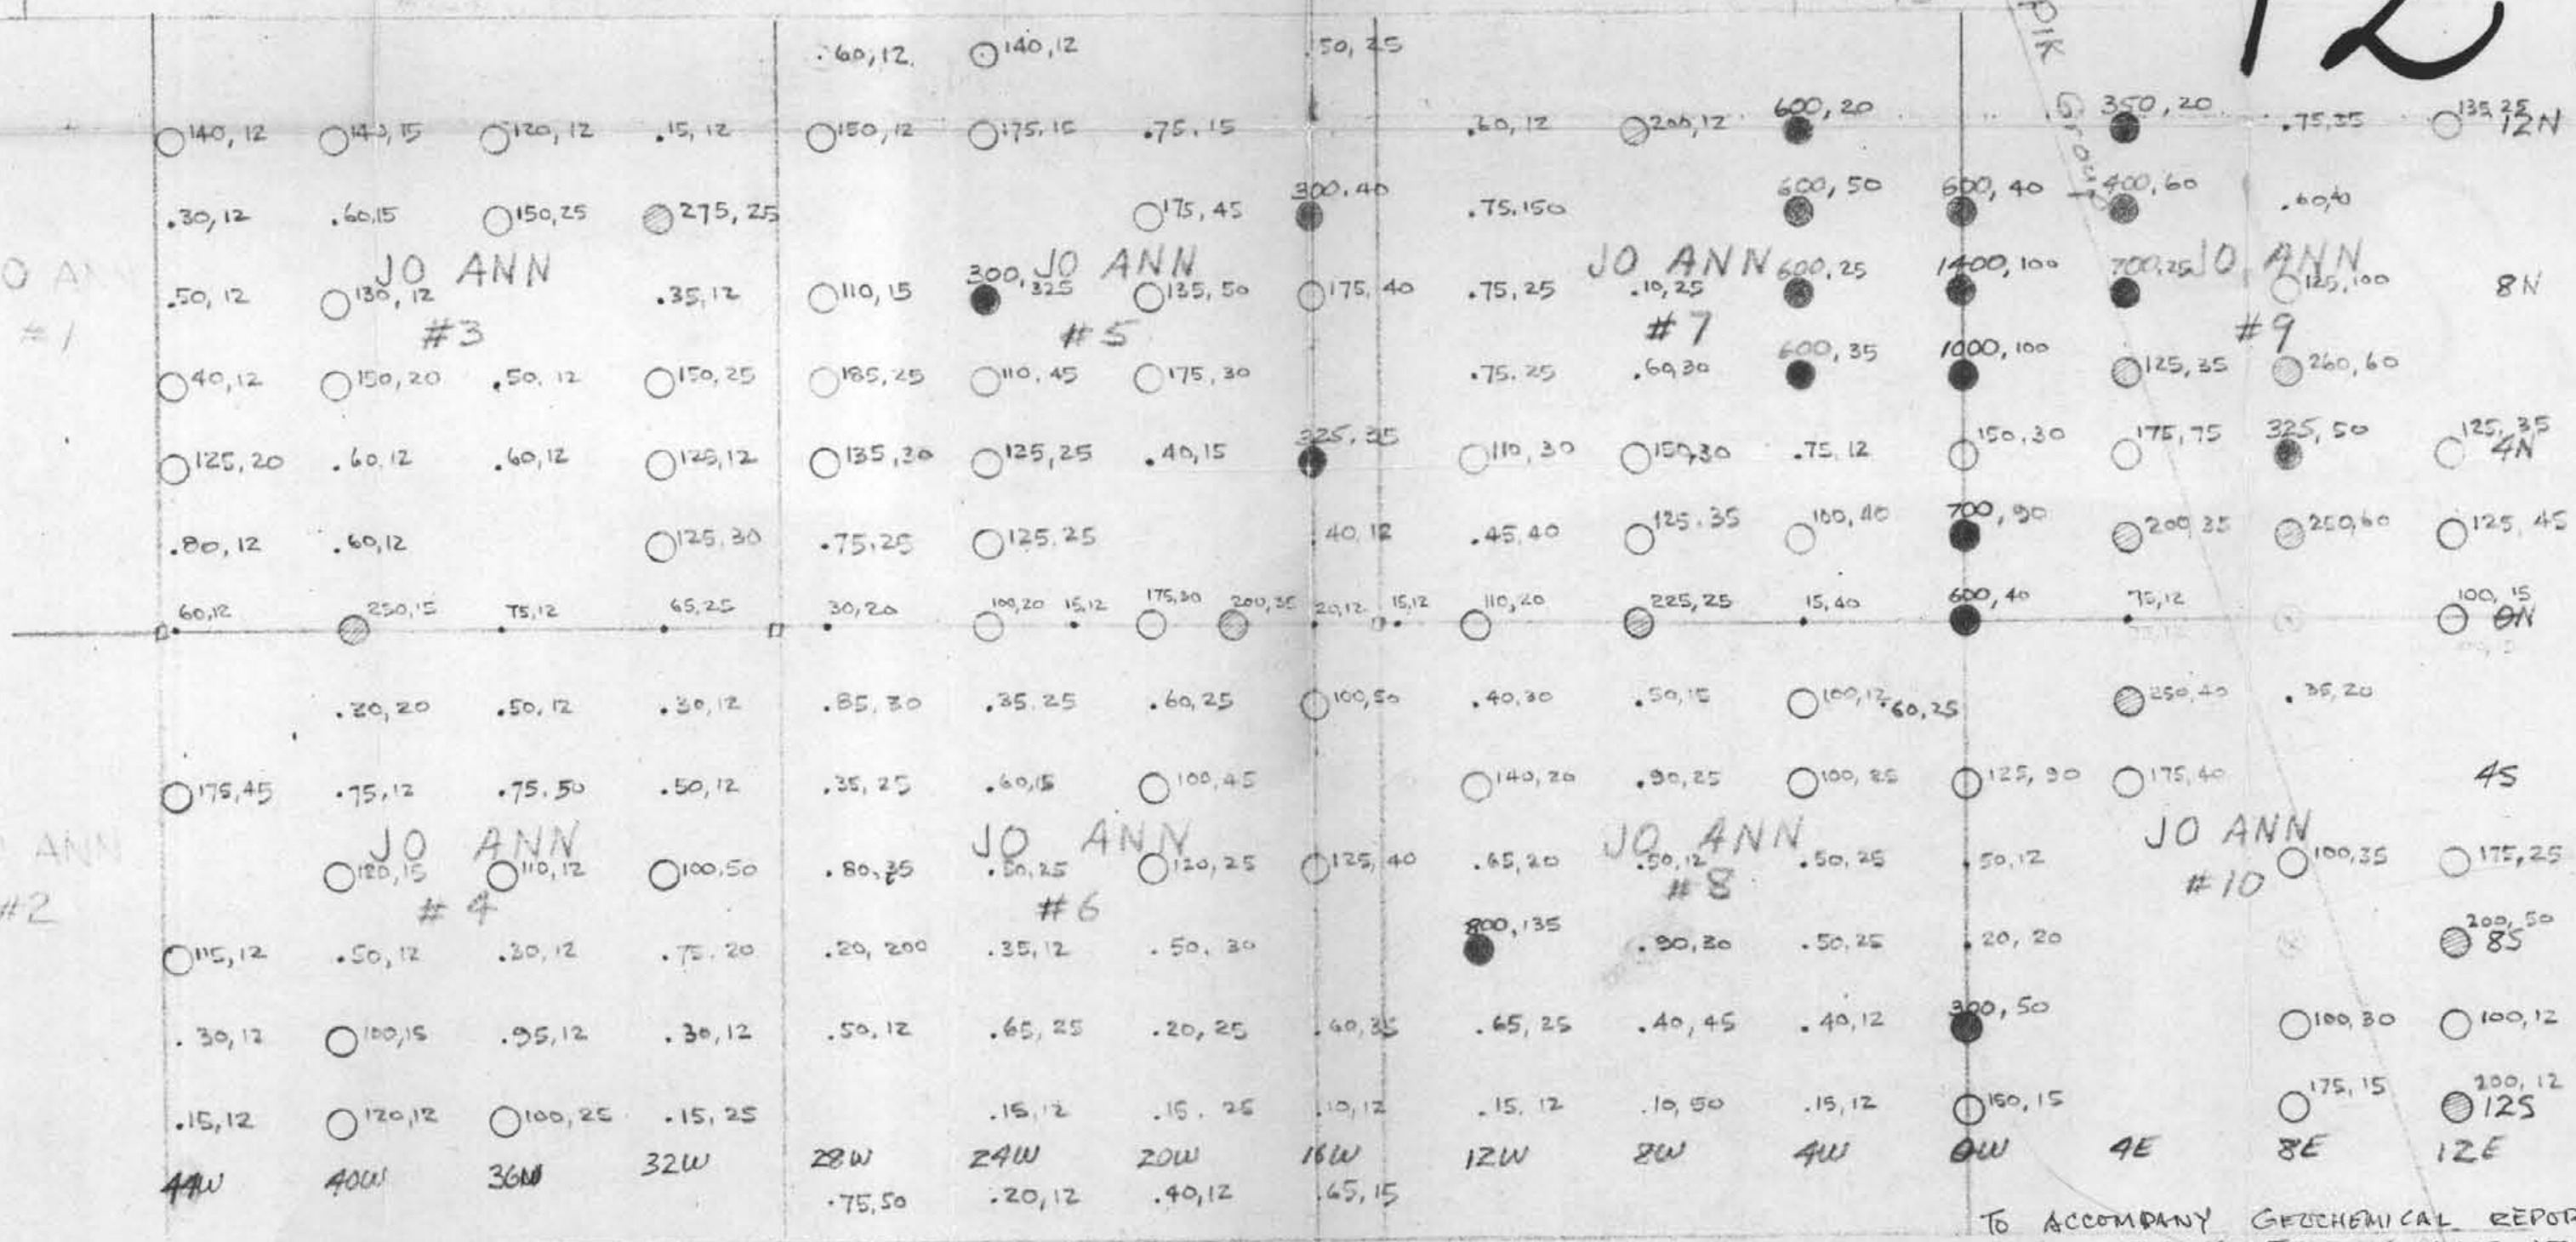 12
PIK Group
.60,12 140,12 50,25
140,12 140,15 120,12 .15,12 150,12 175,15 .75,15 .60,12 200,12 600,20 350,20 .75,35 135,25 12N
.30,12 .60,15 150,25 275,25 175,45 300,40 .75,150 600,50 600,40 400,60 .60,
JO ANN JO ANN JO ANN JO ANN
.50,12 130,12 .35,12 110,15 300,325 135,50 175,40 .75,25 .10,25 600,25 1400,100 700,25 125,100 8N
#1 #3 #5 #7 #9
40,12 150,20 .50,12 150,25 185,25 110,45 175,30 .75,25 .60,30 600,35 1000,100 125,35 260,60
125,20 .60,12 .60,12 125,12 135,30 125,25 .40,15 325,35 110,30 150,30 .75,12 150,30 175,75 325,50 125,35 4N
.80,12 .60,12 125,30 .75,25 125,25 40,12 .45,40 125,35 100,40 700,90 200,35 250,60 125,45
60,12 250,15 75,12 65,25 30,20 100,20 15,12 175,30 200,35 20,12 15,12 110,20 225,25 15,40 600,40 75,12 100,15 0N
.20,20 .50,12 .30,12 .85,30 .35,25 .60,25 100,50 .40,30 .50,15 100,12 .60,25 250,40 .35,20
175,45 .75,12 .75,50 .50,12 .35,25 .60,15 100,45 140,20 .90,25 100,25 125,90 175,40 4S
ANN JO ANN JO ANN JO ANN JO ANN
120,15 110,12 100,50 .80,35 .50,25 120,25 125,40 .65,20 .50,12 .50,25 .50,12 100,35 175,25
#2 #4 #6 #8 #10
115,12 .50,12 .30,12 .75,20 .20,200 .35,12 .50,30 800,135 .90,30 .50,25 .20,20 200,50 8S
.30,12 100,15 .95,12 .30,12 .50,12 .65,25 .20,25 .60,35 .65,25 .40,45 .40,12 300,50 100,30 100,12
.15,12 120,12 100,25 .15,25 .15,12 .15,25 .10,12 .15,12 .10,50 .15,12 150,15 175,15 200,12 12S
44W 40W 36W 32W 28W 24W 20W 16W 12W 8W 4W 0W 4E 8E 12E
.75,50 .20,12 .40,12 .65,15
TO ACCOMPANY GEOCHEMICAL REPOR